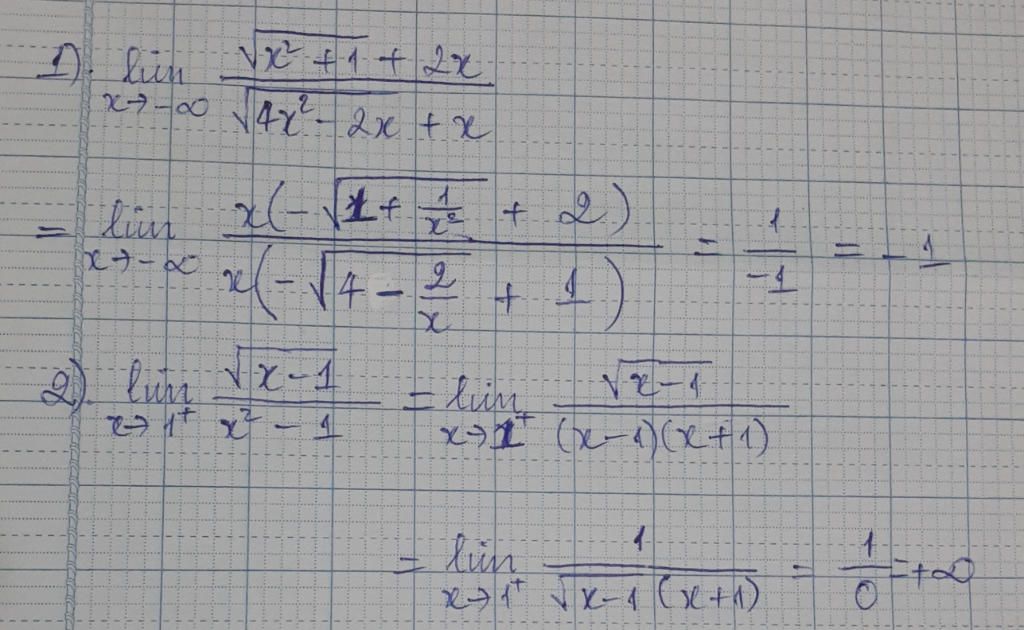 1). lim x→-∞ (√(x² + 1) + 2x) / (√(4x² - 2x) + x)
= lim x→-∞ x(-√(1 + 1/x²) + 2) / x(-√(4 - 2/x) + 1) = 1/-1 = -1
2). lim x→1⁺ √(x-1) / (x² - 1) = lim x→1⁺ √(x-1) / (x-1)(x+1)
= lim x→1⁺ 1 / √(x-1) (x+1) = 1/0 = +∞